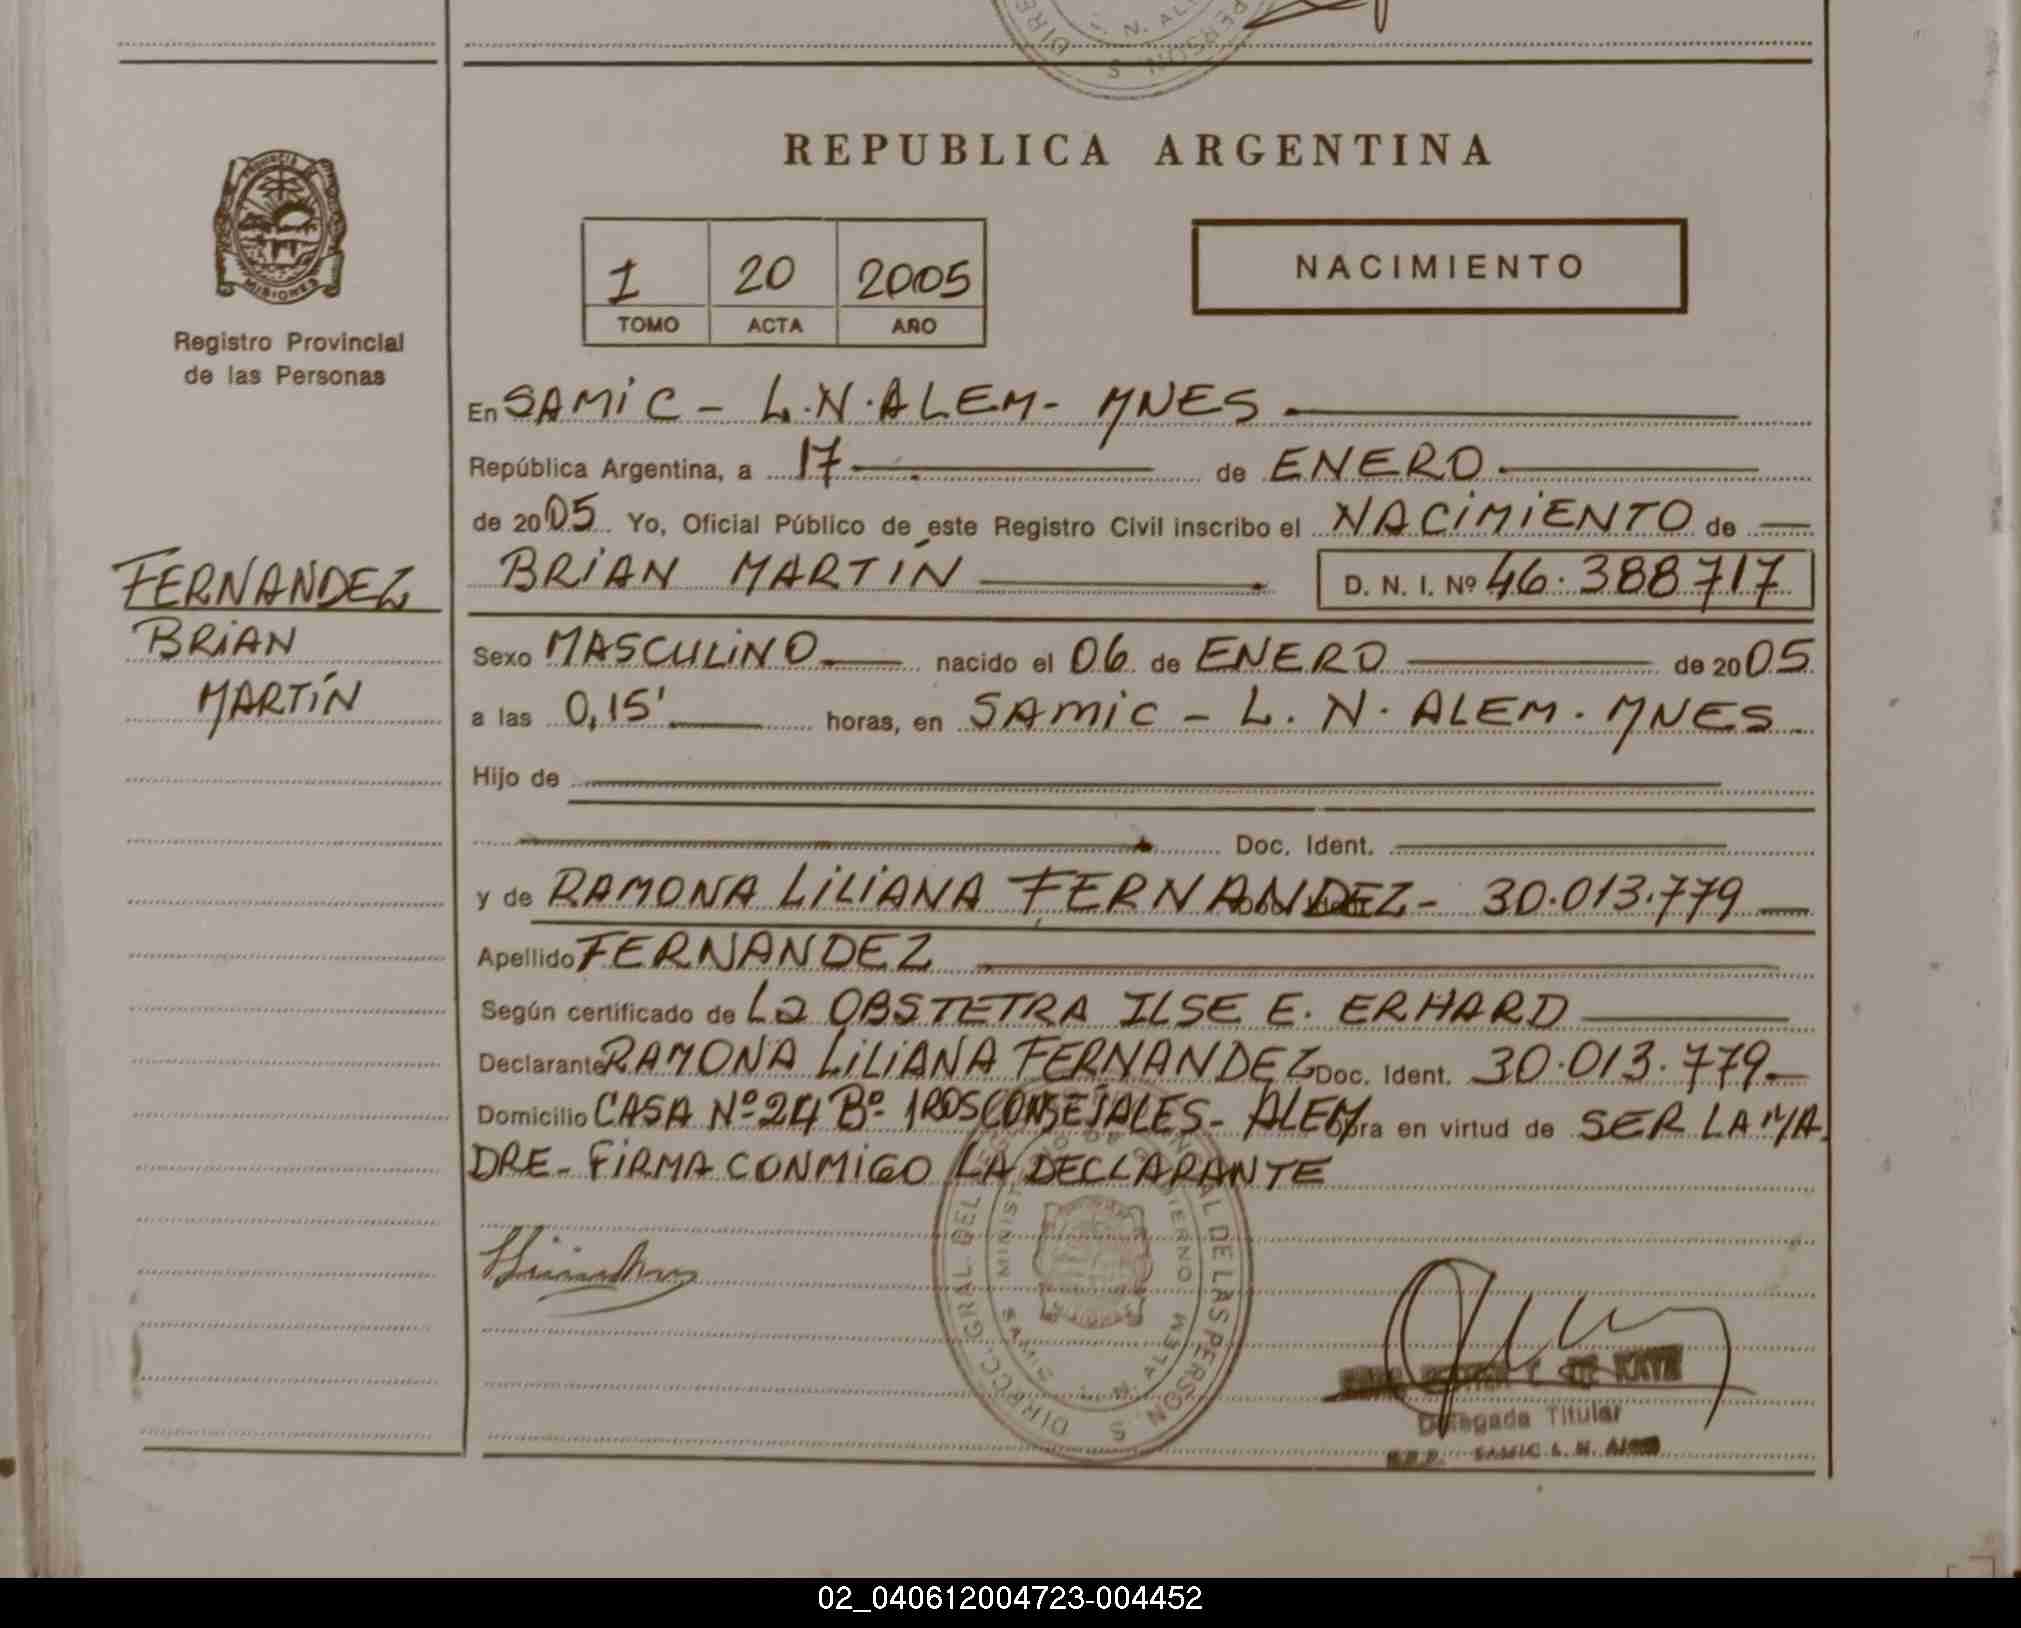 REPUBLICA ARGENTINA
PROVINCIA DE
MISIONES
Registro Provincial
de las Personas
1 20 2005
TOMO ACTA AÑO
NACIMIENTO
En SAMIC - L.N.ALEM- MNES
República Argentina, a 17 de ENERO
de 2005 Yo, Oficial Público de este Registro Civil inscribo el NACIMIENTO de
BRIAN MARTÍN D. N. I. Nº 46.388717
FERNANDEZ
BRIAN
MARTÍN
Sexo MASCULINO nacido el 06 de ENERO de 2005
a las 0,15' horas, en SAMIC - L. N. ALEM. MNES
Hijo de
Doc. Ident.
y de RAMONA LILIANA FERNANDEZ - 30.013.779
Apellido FERNANDEZ
Según certificado de La OBSTETRA ILSE E. ERHARD
Declarante RAMONA LILIANA FERNANDEZ Doc. Ident. 30.013.779
Domicilio CASA Nº 24 Bº 1ROS CONSEJALES - ALEM Obra en virtud de SER LA MA
DRE - FIRMA CONMIGO LA DECLARANTE
DIRECC. GRAL. DEL DE LAS PERSON S
MINIST GOBIERNO
L. N. ALEM
DE KAYE
Delegada Titular
R.P.P. SAMIC L. N. Alem
02_040612004723-004452